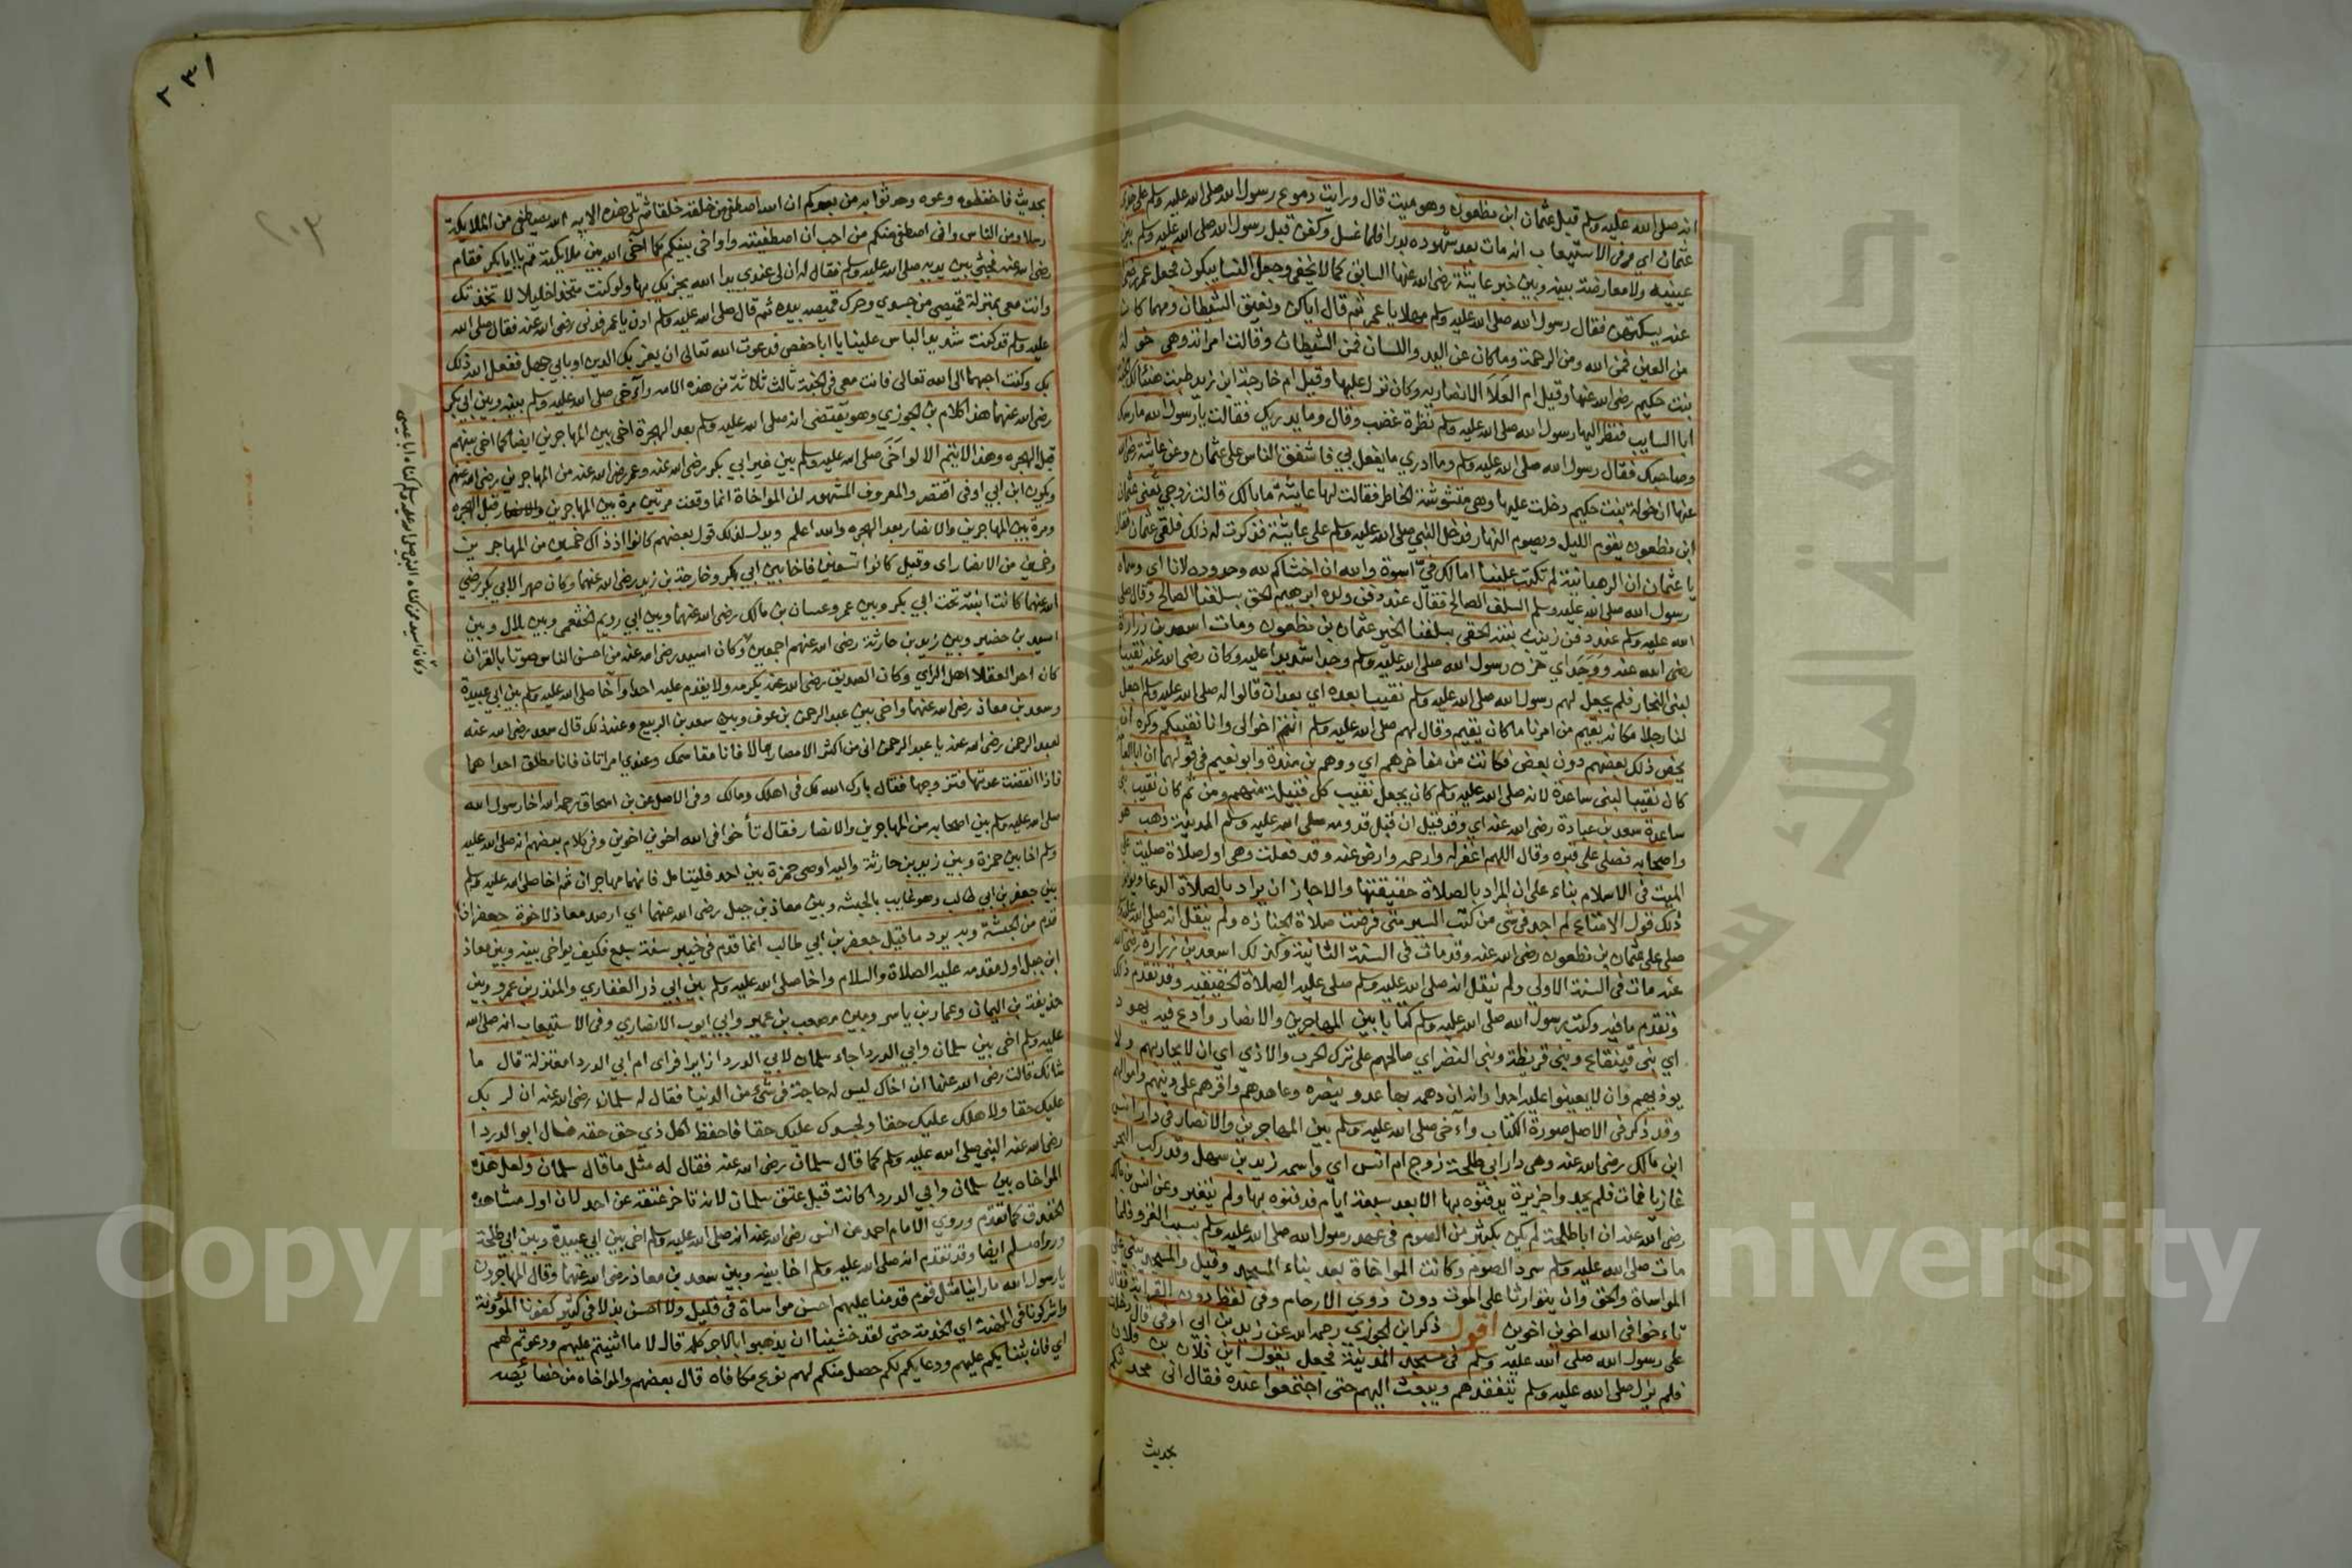 انه صلى الله عليه وسلم قبل عثمان ابن مظعون وهو ميت قال ورايت دموع رسول الله صلى الله عليه وسلم على خدي
عثمان اي وفي الاستيعاب انه مات بعد شهوده بدرا فلما غسل وكفن قبل رسول الله صلى الله عليه وسلم بين
عينيه ولا معارضة بينه وبين خبر عايشة رضي الله عنها السابق كما لا يخفى وجعل النسا يبكون فجعل عمر رضي
عنه يسكتهن فقال رسول الله صلى الله عليه وسلم مهلا يا عمر ثم قال اياكن ونعيق الشيطان ومهما كان
من العين فمن الله ومن الرحمة وما كان عن اليد واللسان فمن الشيطان وقالت امراته وهي خولة
بنت حكيم رضي الله عنها وقيل ام العلا الانصاريه وكان نزل عليها وقيل ام خارجة ابن زيد طبت هنيئا لك الجنة
ابا السايب فنظر اليها رسول الله صلى الله عليه وسلم نظرة غضب وقال وما يدريك فقالت يا رسول الله مارسك
وصاحبك فقال رسول الله صلى الله عليه وسلم وما ادري ما يفعل بي فاشفق الناس على عثمان وعن عايشة رضي الله
عنها ان خولة بنت حكيم دخلت عليها وهي متشوشة الخاطر فقالت لها عايشة ما بالك قالت زوجي تعني عثمان
ابن مظعون يقوم الليل ويصوم النهار فدخل النبي صلى الله عليه وسلم على عايشة فذكرت له ذلك فلقي عثمان فقال
يا عثمان ان الرهبانية لم تكتب علينا اما لك في اسوة والله ان اخشاكم لله وحدوده لانا اي وسماه
رسول الله صلى الله عليه وسلم السلف الصالح فقال عند دفن ولده ابرهيم الحق بسلفنا الصالح وقال صلى
الله عليه وسلم عند دفن زينب بنته الحقي بسلفنا الخير عثمان بن مظعون ومات اسعد بن زرارة
رضي الله عنه ووجد اي حزن رسول الله صلى الله عليه وسلم وجدا شديدا عليه وكان رضي الله عنه نقيبا
لبني النجار فلم يجعل لهم رسول الله صلى الله عليه وسلم نقيبا بعده اي بعد ان قالوا له صلى الله عليه وسلم اجعل
لنا رجلا مكانه يقيم من امرنا ما كان يقيم وقال لهم صلى الله عليه وسلم انتم اخوالي وانا نقيبكم وكره ان
يخص ذلك بعضهم دون بعض فكانت من مفاخرهم اي ووهم بن مندة وابو نعيم في قولهما ان ابا امامة
كان نقيبا لبني ساعدة لانه صلى الله عليه وسلم كان يجعل نقيب كل قبيلة منهم ومن ثم كان نقيب بني
ساعدة سعد بن عبادة رضي الله عنه اي وقد قيل ان قبل قدومه صلى الله عليه وسلم المدينة ذهب هو
واصحابه فصلى على قبره وقال اللهم اغفر له وارحمه وارض عنه وقد فعلت وهي اول صلاة صليت على
الميت في الاسلام بناء على ان المراد بالصلاة حقيقتها والا جاز ان يراد بالصلاة الدعا ويويد
ذلك قول الامتاع لم اجد في شي من كتب السير متى فرضت صلاة الجنازه ولم ينقل انه صلى الله عليه وسلم
صلى على عثمان بن مظعون رضي الله عنه وقد مات في السنة الثانية وكذلك اسعد بن زرارة رضي الله
عنه مات في السنة الاولي ولم ينقل انه صلى الله عليه وسلم صلى عليه الصلاة الحقيقيه وقد تقدم ذلك
وتقدم ما فيه وكتب رسول الله صلى الله عليه وسلم كتابا بين المهاجرين والانصار وادع فيه يهود
اي بني قينقاع وبني قريظة وبني النضر اي صالحهم على ترك الحرب والاذي اي ان لا يحاربهم ولا
يوذيهم وان لا يعينوا عليه احدا وانه ان دهمه بها عدو ينصره وعاهدهم واقرهم على دينهم واموالهم
وقد ذكر في الاصل صورة الكتاب وآخى صلى الله عليه وسلم بين المهاجرين والانصار في دار انس
ابن مالك رضي الله عنه وهي دار ابي طلحة زوج ام انس اي واسمه زيد بن سهل وقد ركب البحر
غازيا فمات فلم يجدوا جزيرة يدفنوه بها الا بعد سبعة ايام فدفنوه بها ولم يتغير وعن انس بن مالك
رضي الله عنه ان ابا طلحة لم يكن يكثر من الصوم في عهد رسول الله صلى الله عليه وسلم بسبب الغزو فلما
مات صلى الله عليه وسلم سرد الصوم وكانت المواخاة بعد بناء المسجد وقيل والمسجد يبني على
المواساة والحق وان يتوارثا على الموت دون ذوي الارحام وفي لفظ دون القرابة فقال
تاءخوا في الله اخوين اخوين اقول ذكر ابن الجوزي رحمه الله عن زيد بن ابي اوفي قال دخلت
على رسول الله صلى الله عليه وسلم في مسجد المدينة فجعل يقول اين فلان بن فلان
فلم يزل صلى الله عليه وسلم يتفقدهم ويبعث اليهم حتى اجتمعوا عنده فقال اني محدثكم
بحديث
٢٣١
بحديث فاحفظوه وعوه وحدثوا به من بعدكم ان الله اصطفى من خلقه خلقا ثم تلى هذه الايه الله يصطفى من الملايكة
رسلا ومن الناس واني اصطفي منكم من احب ان اصطفيته واواخي بينكم كما آخى الله بين ملايكته قم يا ابا بكر فقام
رضي الله عنه فجثي بين يديه صلى الله عليه وسلم فقال له ان لي عندي يدا الله يجزيك بها ولو كنت متخذا خليلا لا تخذتك
وانت معي بمنزلة قميصي من جسدي وحرك قميصه بيده ثم قال صلى الله عليه وسلم ادن يا عمر فدنى رضي الله عنه فقال صلى الله
عليه وسلم قد كنت شديد الباس علينا يا ابا حفص فدعوت الله تعالى ان يعز بك الدين او بابي جهل ففعل الله ذلك
بك وكنت احبهما الى الله تعالى فانت معي في الجنة ثالث ثلاثة من هذه الامه وآخى صلى الله عليه وسلم بينه وبين ابي بكر
رضي الله عنهما هذا كلام بن الجوزي وهو يقتضى انه صلى الله عليه وسلم بعد الهجرة اخى بين المهاجرين ايضا كما اخى بينهم
قبل الهجره وهذا لا يتم الا لو اخى صلى الله عليه وسلم بين غير ابي بكر رضي الله عنه وعمر رضي الله عنه من المهاجرين رضي الله عنهم
ويكون ابن ابي اوفى اقتصر والمعروف المشهور ان المواخاة انما وقعت مرتين مرة بين المهاجرين قبل الهجره
ومرة بين المهاجرين والانصار بعد الهجره والله اعلم ويدل لذلك قول بعضهم كانوا اذ ذاك خمسين من المهاجرين
وخمسين من الانصار اي وقيل كانوا تسعين فاخا بين ابي بكر وخارجة بن زيد رضي الله عنهما وكان صهر الابي بكر رضي
الله عنهما كانت ابنته تحت ابي بكر وبين عمر وعتبان بن مالك رضي الله عنهما وبين ابي رويم الخثعمي وبين بلال وبين
اسيد بن حضير وبين زيد بن حارثة رضي الله عنهم اجمعين وكان اسيد رضي الله عنه من احسن الناس صوتا بالقران
كان احد العقلا اهل الراي وكان الصديق رضي الله عنه يكرمه ولا يقدم عليه احدا وآخا صلى الله عليه وسلم بين ابي عبيدة
وسعد بن معاذ رضي الله عنهما واخى بين عبد الرحمن بن عوف وبين سعد بن الربيع وعند ذلك قال سعد رضي الله عنه
لعبد الرحمن رضي الله عنه يا عبد الرحمن اني من اكثر الانصار مالا فانا مقاسمك وعندي امراتان فانا مطلق احداهما
فاذا انقضت عدتها فتزوجها فقال بارك الله لك في اهلك ومالك وفي الاصل عن بن اسحاق رحمه الله اخا رسول الله
صلى الله عليه وسلم بين اصحابه من المهاجرين والانصار فقال تأخوا في الله اخوين اخوين وفي كلام بعضهم انه صلى الله عليه
وسلم اخا بين حمزة وبين زيد بن حارثة واليه اوصى حمزة بين احد فليتامل فانهما مهاجران ثم اخا صلى الله عليه وسلم
بين جعفر بن ابي طالب وهو غايب بالحبشه وبين معاذ بن جبل رضي الله عنهما اي ارصد معاذ لاخوة جعفر اذا
قدم من الحبشة وبه يرد ما قيل جعفر بن ابي طالب انما قدم في خيبر سنة سبع فكيف يواخى بينه وبين معاذ
ابن جبل اول مقدمه عليه الصلاة والسلام واخا صلى الله عليه وسلم بين ابي ذر الغفاري والمنذر بن عمرو وبين
حذيفة بن اليماني وعمار بن ياسر وبين مصعب بن عمير وابي ايوب الانصاري وفي الاستيعاب انه صلى الله
عليه وسلم اخى بين سلمان وابي الدردا جاء سلمان لابي الدردا زايرا فراى ام ابي الدردا مقتزلة قال ما
شانك قالت رضي الله عنها ان اخاك ليس له حاجة في شئ من الدنيا فقال له سلمان رضي الله عنه ان لربك
عليك حقا ولاهلك عليك حقا ولجسدك عليك حقا فاحفظ لكل ذي حق حقه فسال ابو الدردا
رضي الله عنه النبي صلى الله عليه وسلم كما قال سلمان رضي الله عنه فقال له مثل ما قال سلمان ولعل هذه
المواخاه بين سلمان وابي الدردا كانت قبل عتق سلمان لانه تاخر عتقه عن احد لان اول مشاهده
الخندق كما تقدم وروي الامام احمد عن انس رضي الله عنه انه صلى الله عليه وسلم اخى بين ابي عبيدة وبين ابي طلحة
ورواه مسلم ايضا وقد تقدم انه صلى الله عليه وسلم اخا بينه وبين سعد بن معاذ رضي الله عنهما وقال المهاجرون
يا رسول الله ما راينا مثل قوم قدمنا عليهم احسن مواساة في قليل ولا احسن بذلا في كثير كفونا المؤونة
واشركونا في المهنة اي الخدمة حتى لقد خشينا ان يذهبوا بالاجر كله قال لا ما اثنيتم عليهم ودعوتم لهم
اي فان بثنايكم عليهم ودعايكم لكم حصل منكم لهم نوع مكافاه قال بعضهم والمواخاه من خصائصه
Copyright University
جامعة الملك سعود